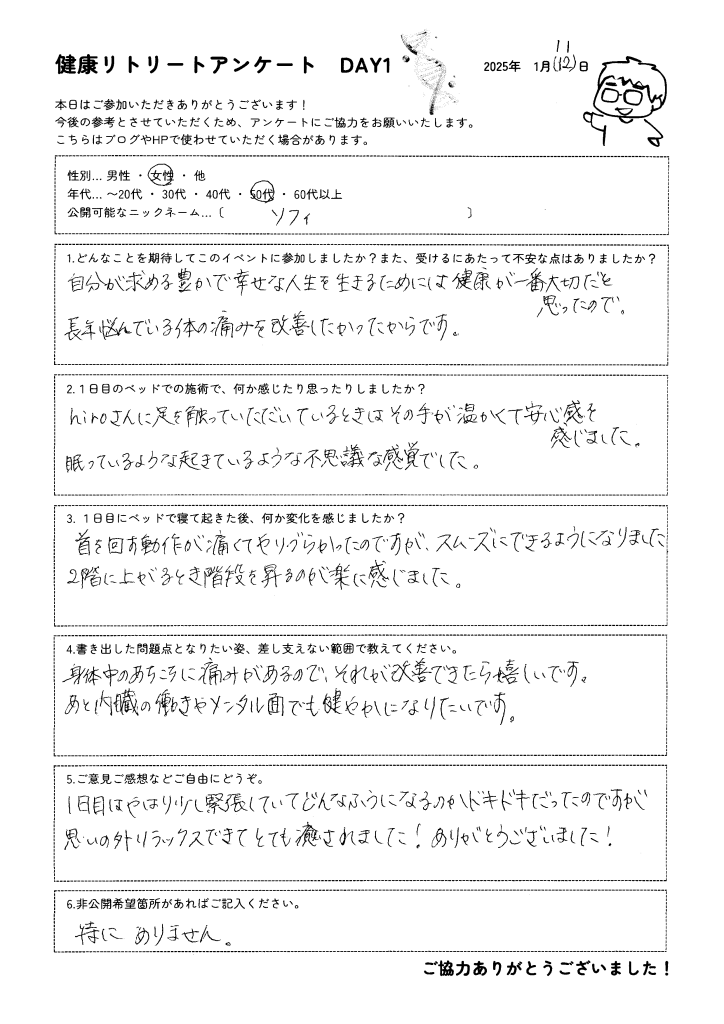 健康リトリートアンケート　DAY1
11
2025年　1月(12)日
本日はご参加いただきありがとうございます！
今後の参考とさせていただくため、アンケートにご協力をお願いいたします。
こちらはブログやHPで使わせていただく場合があります。
性別… 男性 ・ 女性 ・ 他
年代… 〜20代 ・ 30代 ・ 40代 ・ 50代 ・ 60代以上
公開可能なニックネーム…〔　ソフィ　〕
1.どんなことを期待してこのイベントに参加しましたか？また、受けるにあたって不安な点はありましたか？
自分が求める豊かで幸せな人生を生きるためには健康が一番大切だと
思ったので。
長年悩んでいる体の痛みを改善したかったからです。
2.１日目のベッドでの施術で、何か感じたり思ったりしましたか？
hiroさんに足を触っていただいているときはその手が温かくて安心感を
感じました。
眠っているような起きているような不思議な感覚でした。
3. １日目にベッドで寝て起きた後、何か変化を感じましたか？
首を回す動作が痛くてやりづらかったのですが、スムーズにできるようになりました
2階に上がるとき階段を昇るのが楽に感じました。
4.書き出した問題点となりたい姿、差し支えない範囲で教えてください。
身体中のあちこちに痛みがあるので、それが改善できたら嬉しいです。
あと内臓の働きやメンタル面でも健やかになりたいです。
5.ご意見ご感想などご自由にどうぞ。
1日目はやはり少し緊張していてどんなふうになるのかドキドキだったのですが
思いの外リラックスできてとても癒されました！ありがとうございました！
6.非公開希望箇所があればご記入ください。
特に ありません。
ご協力ありがとうございました！